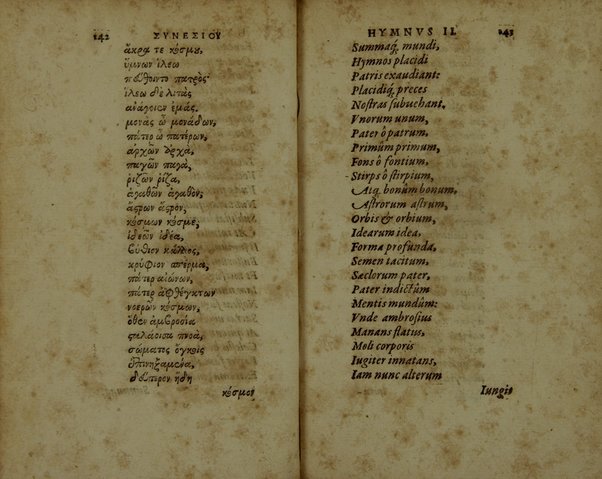 142 ΣΥΝΕΣΙΟΥ
ἄκρα τε κόσμου,
ὕμνων ἵλεω
πεύθοιντο πατρός·
ἵλεω δὲ λιτὰς
ἀνάγοιεν ἐμάς.
μονὰς ὦ μονάδων,
πάτερ ὦ πατέρων,
ἀρχῶν ἀρχά,
παγῶν παγά,
ῥιζῶν ῥίζα,
ἀγαθῶν ἀγαθόν,
ἄστρων ἄστρον,
κόσμων κόσμε,
ἰδεῶν ἰδέα,
βύθιον κάλλος,
κρύφιον σπέρμα,
πάτερ αἰώνων,
πάτερ ἀφθέγκτων
νοερῶν κόσμων,
ὅθεν ἀμβροσία
σταλάοισα πνοά,
σώματος ὄγκοις
ἐπινηξαμένα,
δεύτερον ἤδη
κόσμον
HYMNVS II. 143
Summaq́, mundi,
Hymnos placidi
Patris exaudiant:
Placidiq́, preces
Nostras subuehant.
Vnorum unum,
Pater ô patrum,
Primûm primum,
Fons ô fontium,
Stirps ô stirpium,
Atq. bonûm bonum,
Astrorum astrum,
Orbis & orbium,
Idearum idea,
Forma profunda,
Semen tacitum,
Sæclorum pater,
Pater indictûm
Mentis mundûm:
Vnde ambrosius
Manans flatus,
Moli corporis
Iugiter innatans,
Iam nunc alterum
Iungis